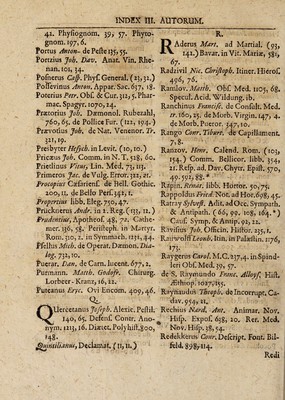 INDEX III. AUTORUM.
42. Physiognom. 39, 57. Phyto-
gnom. 197, 6.
Portus Anton. de Peste 135, 55.
Portzius Joh. Dav. Anat. Vin. Rhe-
nan. 101, 34.
Posnerus Casp. Physf. General. (23, 52.)
Possevinus Anton. Appar. Sac. 617, 18.
Poterius Petr. Obs. & Cur. 322, 5. Phar-
mac. Spagyr. 1070, 24.
Prætorius Joh. Dæmonol. Rubezahl,
760, 65. de Pollice Fur. (122, 194.)
Prævotius Joh. de Nat. Venenor. Tr.
321, 19.
Presbyter Hesych. in Levit. (10, 10.)
Pricæus Joh. Comm. in N. T. 528, 60.
Priestinus Vitus, Lin. Med. 75, 113.
Primeros Jac. de Vulg. Error. 322, 21.
Procopius Cæsariens. de Bell. Gothic.
200, 11. de Bello Pers. 548, 1.
Propertius libb. Eleg. 750, 47.
Prucknerus Andr. in 2. Reg. (153, 12.)
Prudentius, Apotheos. 48, 72. Cathe-
mer. 136, 58. Peristeph. in Martyr.
Rom. 750, 2. in Symmach. 1131, 24.
Psellus Mich. de Operat. Dæmon. Dia-
log. 732, 10.
Puerar. Dav. de Carn. lucent. 679, 2.
Purmann. Matth. Godofr. Chirurg.
Lorbeer-Krantz, 16, 22.
Puteanus Eryc. Ovi Encom. 409, 46.
Q.
Quercetanus Joseph. Alexic. Pestil.
140, 65. Defens. Contr. Ano-
nym. 1213, 16. Diætet. Polyhist. 800,
148.
Quintilianus, Declamat. (11, 11.)
R.
Raderus Matt. ad Martial. (93,
142.) Bavar. in Vit. Mariæ, 581,
67.
Radzivil Nic. Christoph. Itiner. Hierof.
496, 76.
Ramlov. Matth. Obs. Med. 1105, 68.
Specul. Acid. Wildung. ib.
Ranchinus Francisc. de Consult. Med.
17, 160, 23. de Morb. Virgin. 147, 4.
de Morb. Puéror. 547, 10.
Rango Conr. Tibur. de Capillament.
7, 8.
Ranzov. Henr. Calend. Rom. (103,
154.) Comm. Bellicor. libb. 354,
21. Resp. ad. Dav. Chytr. Epist. 570,
49. 592, 88.
Rapin. Renat. libb. Hortor. 50, 75.
Rappoldus Frid. Not. ad Hor. 698, 45.
Rattray Sylvest. Adit. ad Occ. Sympath.
& Antipath. (66, 90. 108, 164.)
Caus. Symp. & Antip. 92, 22.
Ravisius Joh. Officin. Histor. 235, 1.
Rauwolff Leonh. Itin. in Palæstin. 1176,
173.
Raygerus Carol. M.C. 217, 4. in Spindl-
eri Obs. Med. 39, 57.
de S. Raymundo Franc. Alloys. Hist.
Æthiop. 1027, 115.
Raynaudus Theoph. de Incorrupt. Ca-
dav. 954, 21.
Rechius Nard. Ant. Animar. Nov.
Hisp. Expos. 658, 20. Rer. Med.
Nov. Hisp. 38, 54.
Redekkerus Conr. Descript. Font. Bil-
feld. 898, 114.
Redi